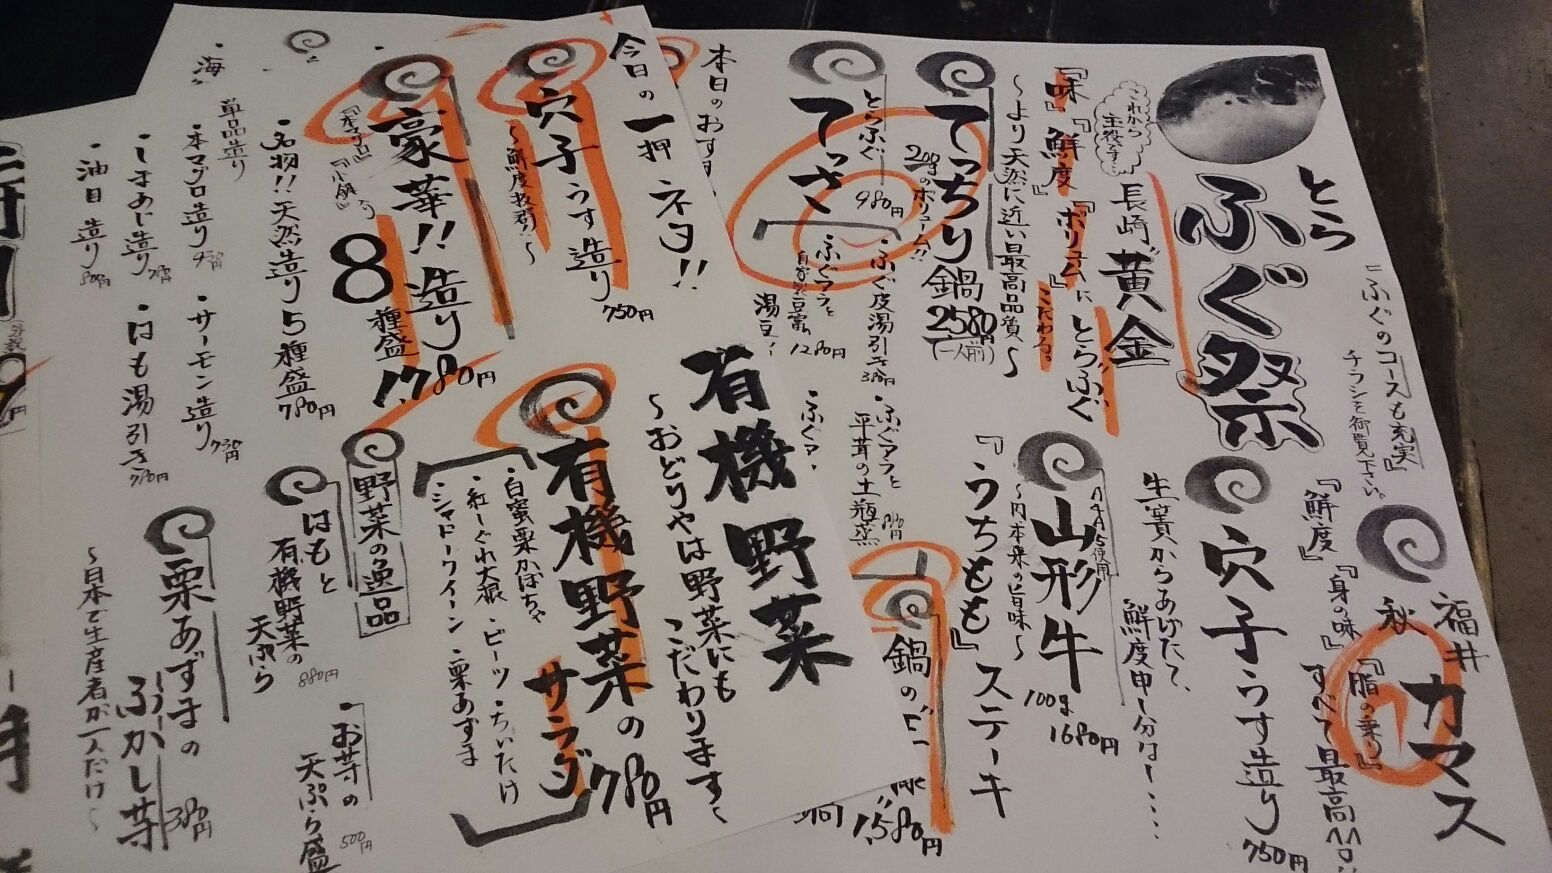 とら
ふぐ祭
ふぐのコースも充実
チラシを御覧下さい。
これから
主役です
長崎“黄金
『味』『鮮度』『ボリューム』にとらふぐ
こだわる。
〜より天然に近い最高品質〜
てっちり鍋
2580
(一人前)
200gのボリューム!!
とらふぐ
てっさ
980円
・ふぐ皮湯引き
380円
・ふぐアラと
自家製豆富
湯豆
1280円
・ふぐアラと
平茸の土瓶蒸
・ふぐア
本日のおす
福井
秋
カマス
『鮮度』『身の味』『脂の乗り』
すべて最高
穴子うす造り
750円
生簀からあげたて、
鮮度申し分なし....
山形牛
A4A5使用
〜肉本来の旨味〜
100g
1680円
『うちもも』ステーキ
鍋の
1,580円
今日の一押ネタ!!
穴子うす造り
〜鮮度抜群!!〜
750円
豪華!!造り
8種盛
1,780円
名物!!天然造り5種盛
780円
単品造り
・本マグロ造り
・サーモン造り
・しまあじ造り
・はも湯引き
780円
・油目造り
有機野菜
〜おどりやは野菜にも
こだわります〜
有機野菜の
サラダ
780円
・白蜜栗かぼちゃ
・紅しぐれ大根・ビーツ・ちいたけ
・シャドークイーン・栗あずま
野菜の逸品
はもと
有機野菜の
天ぷら
880円
・お芋の
天ぷら盛
500円
栗あずまの
ふかし芋
380円
〜日本で生産者が一人だけ〜